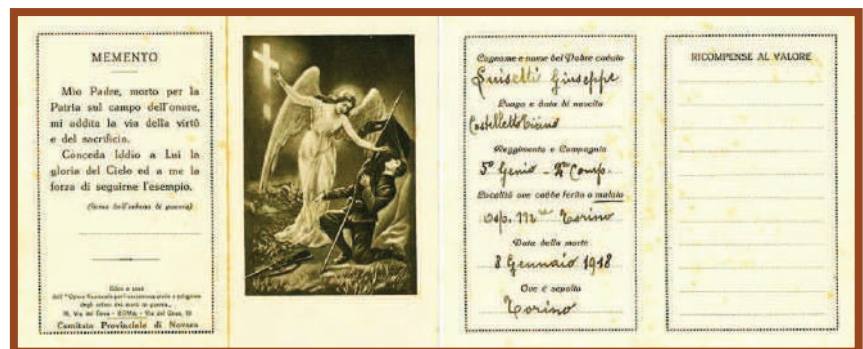 MEMENTO
Mio Padre, morto per la
Patria sul campo dell'onore,
mi addita la via della virtù
e del sacrificio.
Conceda Iddio a Lui la
gloria del Cielo ed a me la
forza di seguirne l'esempio.
(firma dell'orfano di guerra)
Edito a cura
dell'"Opera Nazionale per l'assistenza civile e religiosa
degli orfani dei morti in guerra"
ROMA
Comitato Provinciale di Novara
Cognome e nome del Padre caduto
Giuseppe
Luogo e data di nascita
Castelletto Ticino
Reggimento e Compagnia
5° Genio - 2ª Comp.
Località ove cadde ferito o malato
Osp. Mre Torino
Data della morte
8 Gennaio 1918
Ove è sepolto
Torino
RICOMPENSE AL VALORE